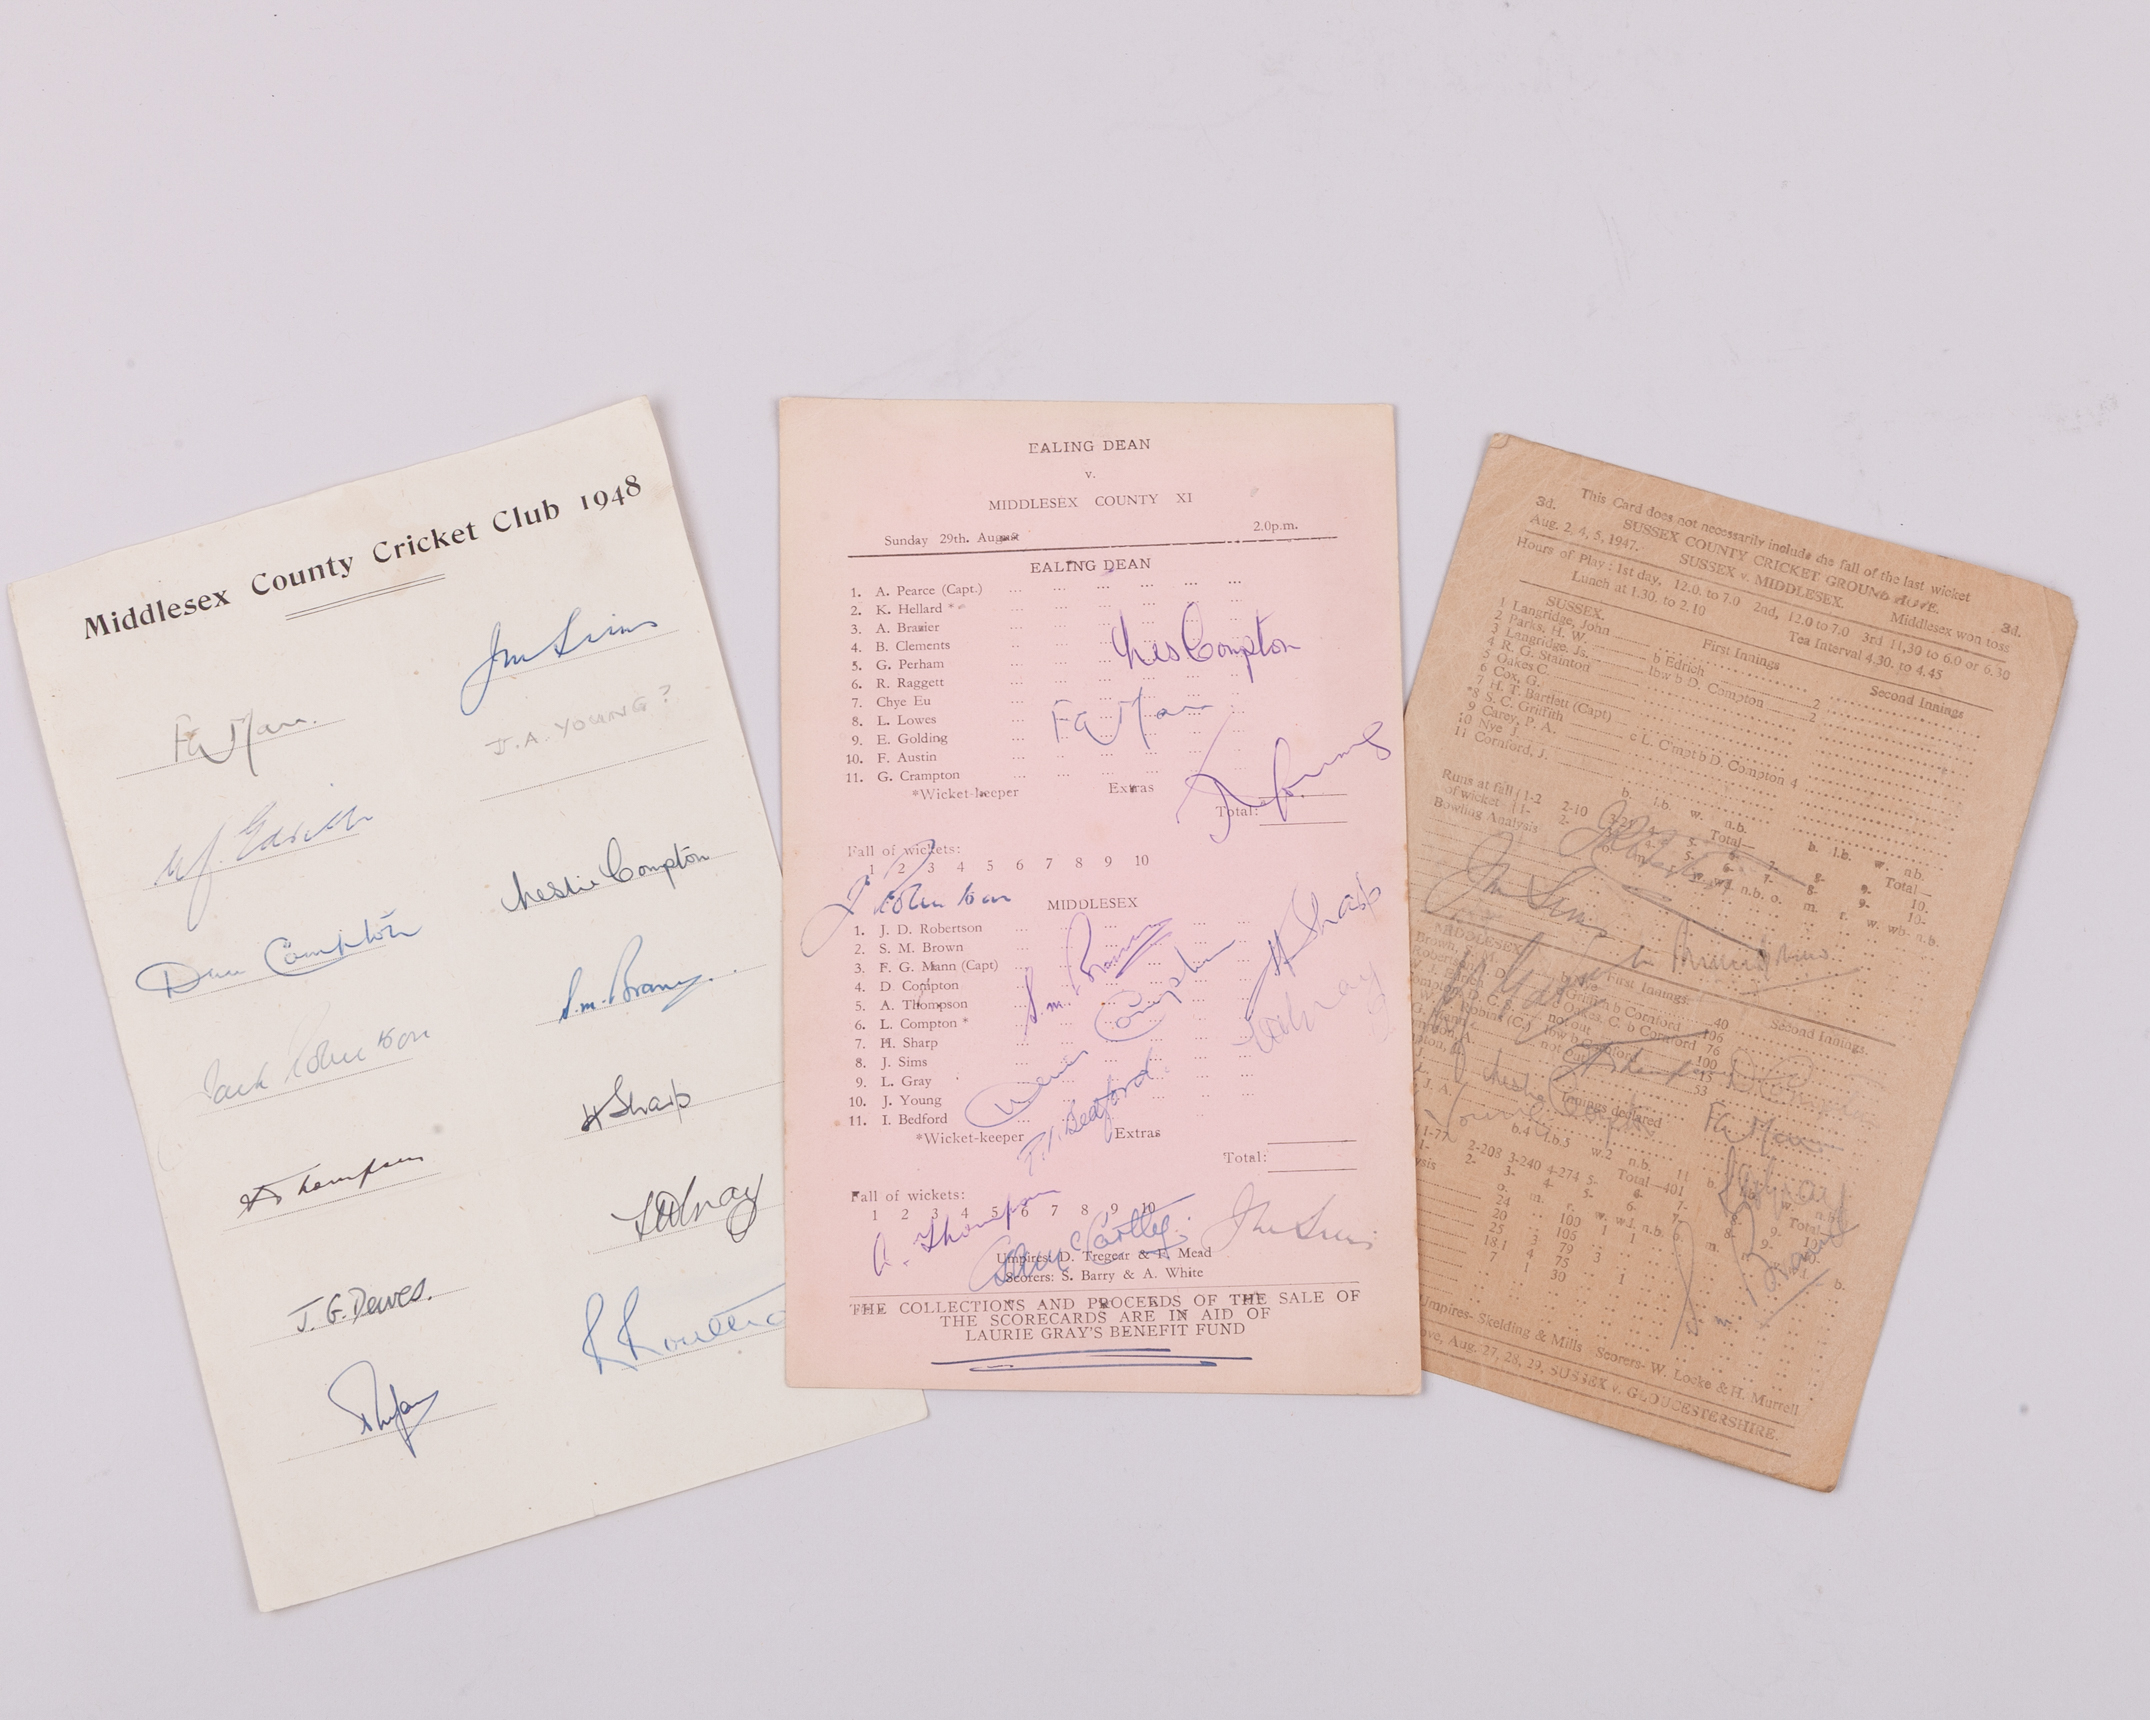 Middlesex County Cricket Club 1948
Jim Sims
FG Mann.
J.A. YOUNG?
W.J. Edrich
Leslie Compton
Denis Compton
S.M. Brown.
Jack Robertson
H Sharp
A Thompson
L H Gray
J. G. Dewes.
EALING DEAN
v.
MIDDLESEX COUNTY XI
Sunday 29th. August 2.0p.m.
EALING DEAN
1. A. Pearce (Capt.)
2. K. Hellard *
3. A. Brazier
4. B. Clements
5. G. Perham
6. R. Raggett
7. Chye Eu
8. L. Lowes
9. E. Golding
10. F. Austin
11. G. Crampton
*Wicket-keeper Extras
Total:
Les Compton
FG Mann
J Young
Fall of wickets:
1 2 3 4 5 6 7 8 9 10
J Robertson
MIDDLESEX
1. J. D. Robertson
2. S. M. Brown
3. F. G. Mann (Capt)
4. D. Compton
5. A. Thompson
6. L. Compton *
7. H. Sharp
8. J. Sims
9. L. Gray
10. J. Young
11. I. Bedford
*Wicket-keeper Extras
Total:
S.M. Brown
H Sharp
Denis Compton
L H Gray
P.I. Bedford
Fall of wickets:
1 2 3 4 5 6 7 8 9 10
A. Thompson
Jim Sims
Umpires: D. Tregear & F. Mead
Scorers: S. Barry & A. White
THE COLLECTIONS AND PROCEEDS OF THE SALE OF
THE SCORECARDS ARE IN AID OF
LAURIE GRAY'S BENEFIT FUND
This Card does not necessarily include the fall of the last wicket
3d. SUSSEX COUNTY CRICKET GROUND HOVE. 3d.
Aug. 2, 4, 5, 1947. SUSSEX v. MIDDLESEX. Middlesex won toss
Hours of Play: 1st day, 12.0 to 7.0 2nd, 12.0 to 7.0 3rd 11.30 to 6.0 or 6.30
Lunch at 1.30. to 2.10 Tea Interval 4.30. to 4.45
SUSSEX. First Innings Second Innings
1 Langridge, John b Edrich 2
2 Parks, H. W. lbw b D. Compton 2
3 Langridge, Js.
4 R. G. Stainton
5 Oakes C.
6 Cox, G. c L. C'mpt b D. Compton 4
7 H. T. Bartlett (Capt)
*8 S. C. Griffith
9 Carey, P. A.
10 Nye J.
11 Cornford, J.
b. l.b. w. n.b. Total— b. l.b. w. n.b. Total—
Runs at fall 1-2 2-10 3-21 4- 5- 6- 7- 8- 9- 10-
of wicket 1- 2-
Bowling Analysis
Jim Sims
MIDDLESEX First Innings. Second Innings.
Griffith b Cornford 40
Oakes, C. b Cornford 106
not out 76
lbw b Cornford 100
not out 15
53
Innings declared
b.4 l.b.5 w.2 n.b. 11
Total—401
1-77 2-208 3-240 4-274 5- 6- 7- 8- 9- 10-
24 100 1 1
20 105 1
25 3 79 3
18.1 4 75
7 1 30 1
Leslie Compton
Young
FG Mann
S.M. Brown
Umpires- Skelding & Mills Scorers- W. Locke & H. Murrell
Hove, Aug. 27, 28, 29, SUSSEX v. GLOUCESTERSHIRE.